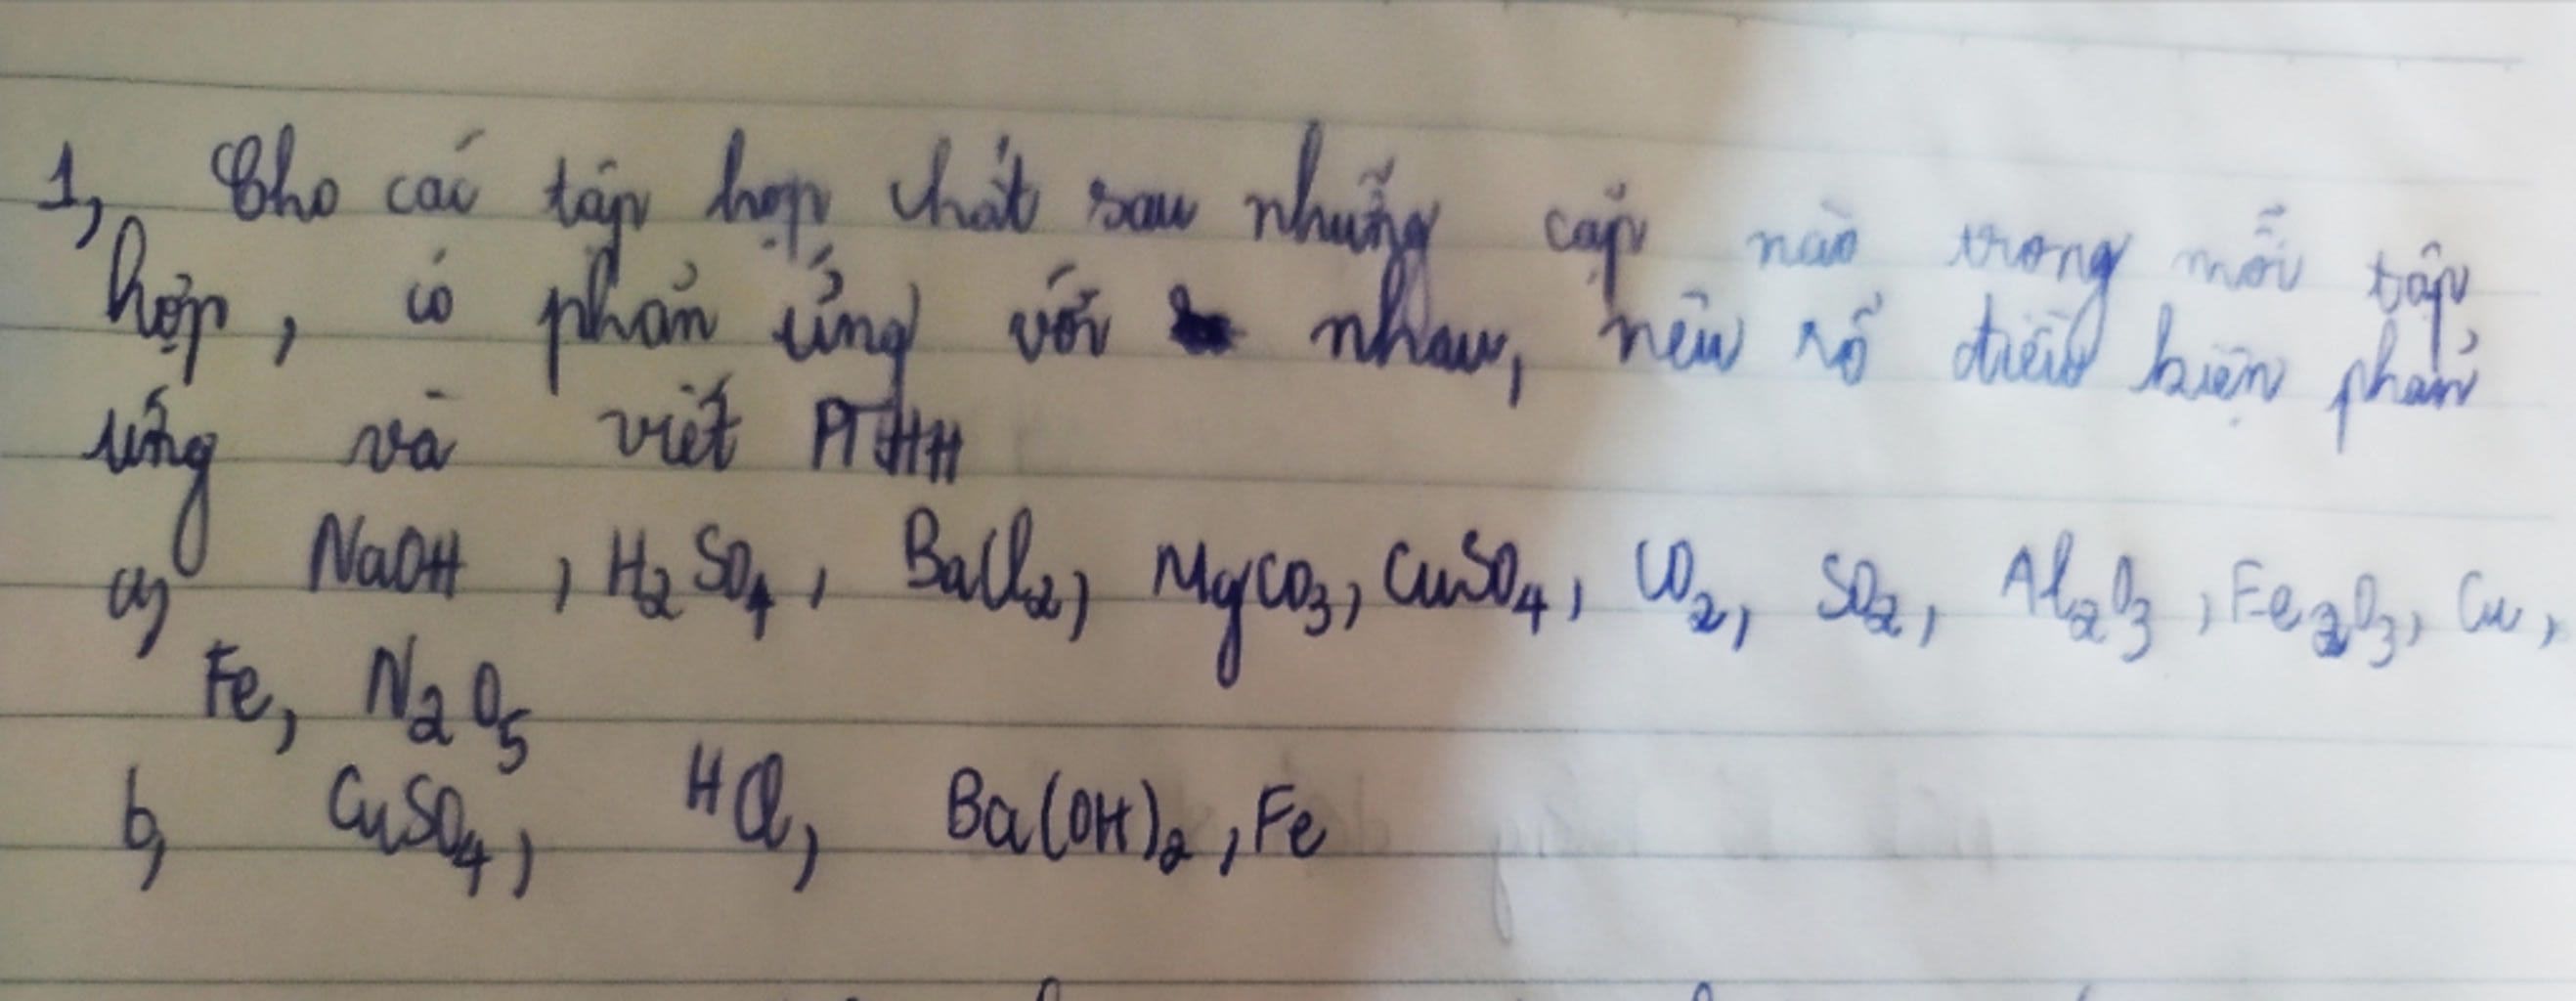 1, Cho các tập hợp chất sau những cặp nào trong mỗi tập
hợp, có phản ứng với nhau, nêu rõ điều kiện phản
ứng và viết PTHH
a, NaOH, H₂SO₄, BaCl₂, MgCO₃, CuSO₄, CO₂, SO₂, Al₂O₃, Fe₂O₃, Cu,
Fe, N₂O₅
b, CuSO₄, HCl, Ba(OH)₂, Fe